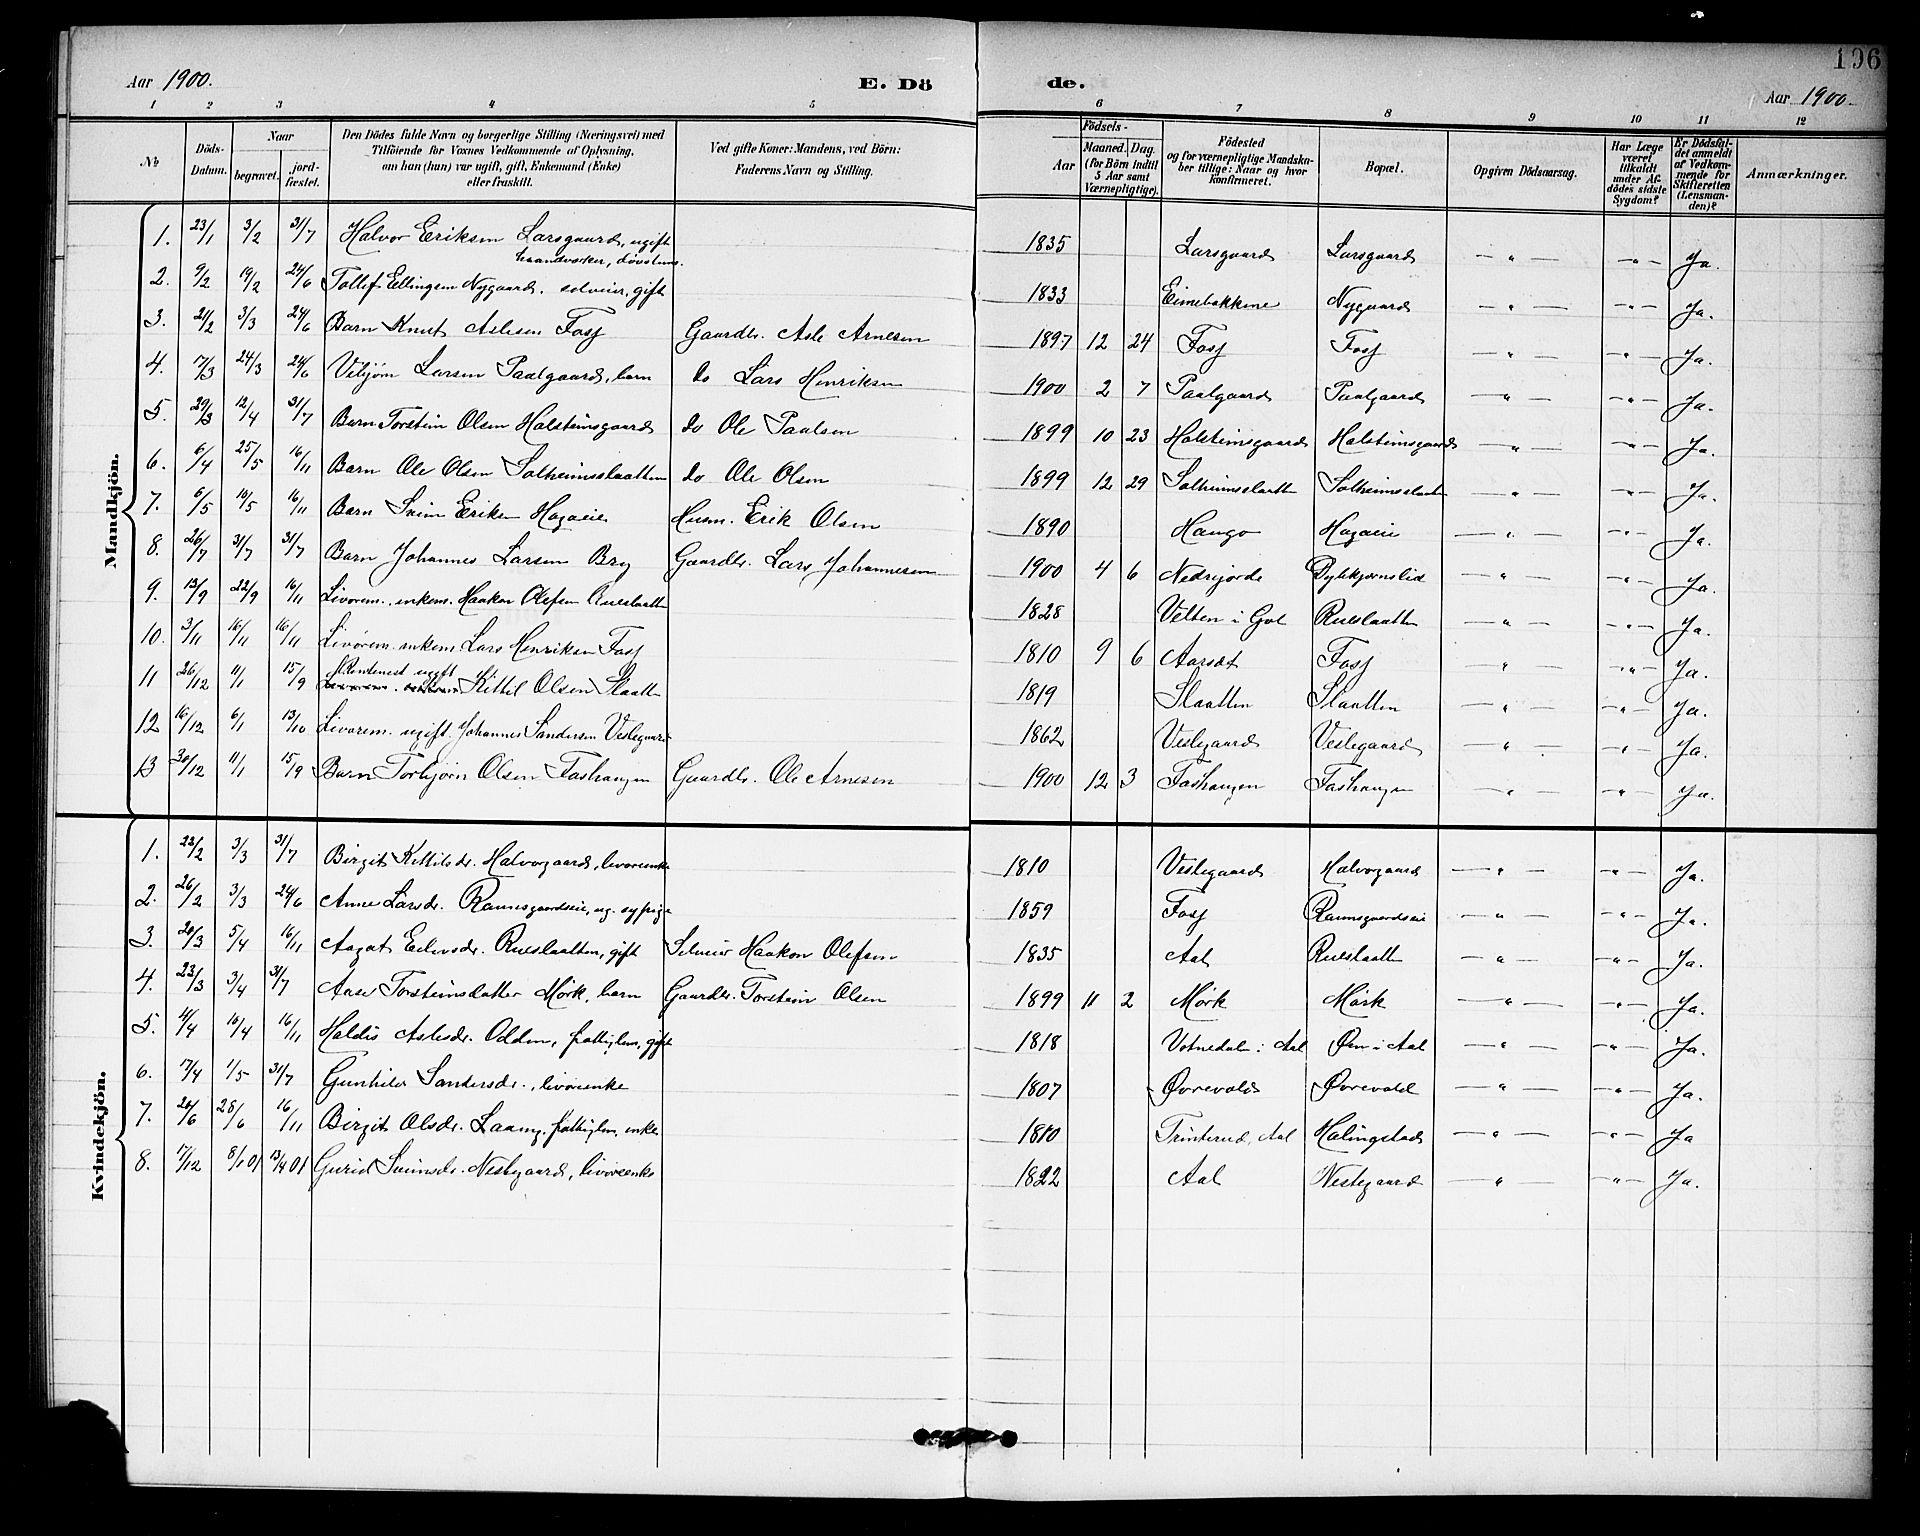 196
Aar 1900. E. Dö de. Aar 1900.
1 2 3 4 5 6 7 8 9 10 11 12
№ Döds-Datum. Naar begravet. jordfæstet. Den Dödes fulde Navn og borgerlige Stilling (Næringsvei) med Tilföiende for Voxnes Vedkommende af Oplysning, om han (hun) var ugift, gift, Enkemand (Enke) eller fraskilt. Ved gifte Koner: Mandens, ved Börn: Faderens Navn og Stilling. Födsels- Aar Maaned. Dag. (for Börn indtil 5 Aar samt Værnepligtige). Födested og for værnepligtige Mandskaber tillige: Naar og hvor konfirmeret. Bopæl. Opgiven Dödsaarsag. Har Læge været tilkaldt under Afdödes sidste Sygdom? Er Dödsfaldet anmeldt af Vedkommende for Skifteretten (Lensmanden)? Anmærkninger.
Mandkjön.
1. 23/1 3/2 31/7 Halvor Eriksen Larsgaard, ugift haandværker, døvstum. 1835 Larsgaard Larsgaard — " — — " — Ja.
2. 9/2 19/2 24/6 Tollef Ellingsen Nygaard. selveier, gift 1833 Eimebakkene Nygaard — " — — " — Ja.
3. 21/2 3/3 24/6 Barn Knut Aslesen Fosj Gaardbr. Asle Arnesen 1897 12 24 Fosj Fosj — " — — " — Ja.
4. 17/3 24/3 24/6 Vebjøm Larsen Paalgaard, barn do Lars Henriksen 1900 2 7 Paalgaard Paalgaard — " — — " — Ja.
5. 29/3 12/4 31/7 Barn Torstein Olsen Holsteinsgaard do Ole Paulsen 1899 10 23 Holsteinsgaard Holsteinsgaard — " — — " — Ja.
6. 6/4 25/5 16/11 Barn Ole Olsen Solheimsslaatten do Ole Olsen 1899 12 29 Solheimsslaatten Solheimsslaatten — " — — " — Ja.
7. 6/5 10/5 16/11 Barn Svein Eriksen Hagaeie Husm. Erik Olsen 1890 Haugo Hagaeie — " — — " — Ja.
8. 26/7 31/7 31/7 Barn Johannes Larsen Bry Gaardbr. Lars Johannesen 1900 4 6 Nedrejorde — " — — " — Ja.
9. 13/9 22/9 16/11 Livørem. enkem. Haakon Olefsen Rueslaatten 1828 Velten i Gol Rueslaatten — " — — " — Ja.
10. 3/11 16/11 16/11 Livørem. enkem. Lars Henriksen Fosj 1810 9 6 Aarset Fosj — " — — " — Ja.
11 26/12 11/1 15/9 Rentenist ugift Kittil Olsen Slaatten 1819 Slaatten Slaatten — " — — " — Ja.
12 16/12 6/1 13/10 Livørem. ugift. Johannes Sandersen Veslegaard 1862 Veslegaard Veslegaard — " — — " — Ja.
13 30/12 11/1 15/9 Barn Torbjørn Olsen Foshaugen Gaardbr. Ole Arnesen 1900 12 3 Foshaugen Foshaugen — " — — " — Ja.
Kvindekjön.
1. 22/2 3/3 31/7 Birgit Kittilsdr. Halvorgaard, livøreenke 1810 Veslegaard Halvorgaard — " — — " — Ja.
2. 26/2 3/3 24/6 Anne Larsdr. Ramsgaardseie, ug. sypige 1859 Fosj Ramsgaardseie — " — — " — Ja.
3. 20/3 5/4 16/11 Aagot Eilevsdr. Rueslaatten, gift Selveier Haakon Olefsen 1835 Aal Rueslaatten — " — — " — Ja.
4. 23/3 3/4 31/7 Aase Torsteinsdatter Mørk, barn Gaardbr. Torstein Olsen 1899 11 2 Mørk Mørk — " — — " — Ja.
5. 4/4 10/4 16/11 Haldis Aslesdr. Odden, fattiglem, gift 1818 Votnedalen i Aal Øen i Aal — " — — " — Ja.
6. 17/4 1/5 31/7 Gunhild Sandersdr., livøreenke 1807 Øvrevold Øvrevold — " — — " — Ja.
7. 20/6 28/6 16/11 Birgit Olsdr. Laang, fattiglem, enke 1810 Trinterud, Aal Halingstad — " — — " — Ja
8. 17/12 8/1 01 13/4 01 Gurid Sveinsdr. Neslegaard, livøreenke 1822 Aal Neslegaard — " — — " — Ja.